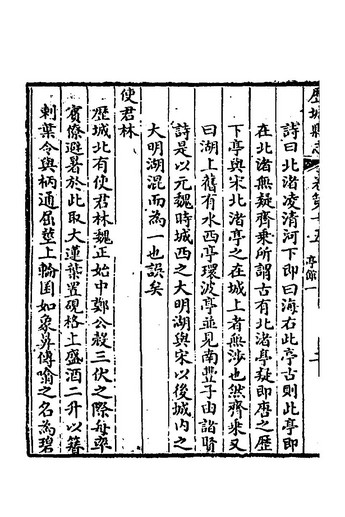 歷城縣志 卷第十五 亭館一 二
詩曰北渚淩清河下即曰海右此亭古則此亭即
在北渚無疑齊乘所謂古有北渚亭疑即唐之歷
下亭與宋北渚亭之在城上者無涉也然齊乘又
曰湖上舊有水西亭環波亭並見南豐子由諸賢
詩是以元魏時城西之大明湖與宋以後城內之
大明湖混而為一也誤矣
使君林
歷城北有使君林魏正始中鄭公慤三伏之際每率
賓僚避暑於此取大蓮葉置硯格上盛酒二升以簪
刺葉令與柄通屈莖上輪囷如象鼻傳噏之名為碧